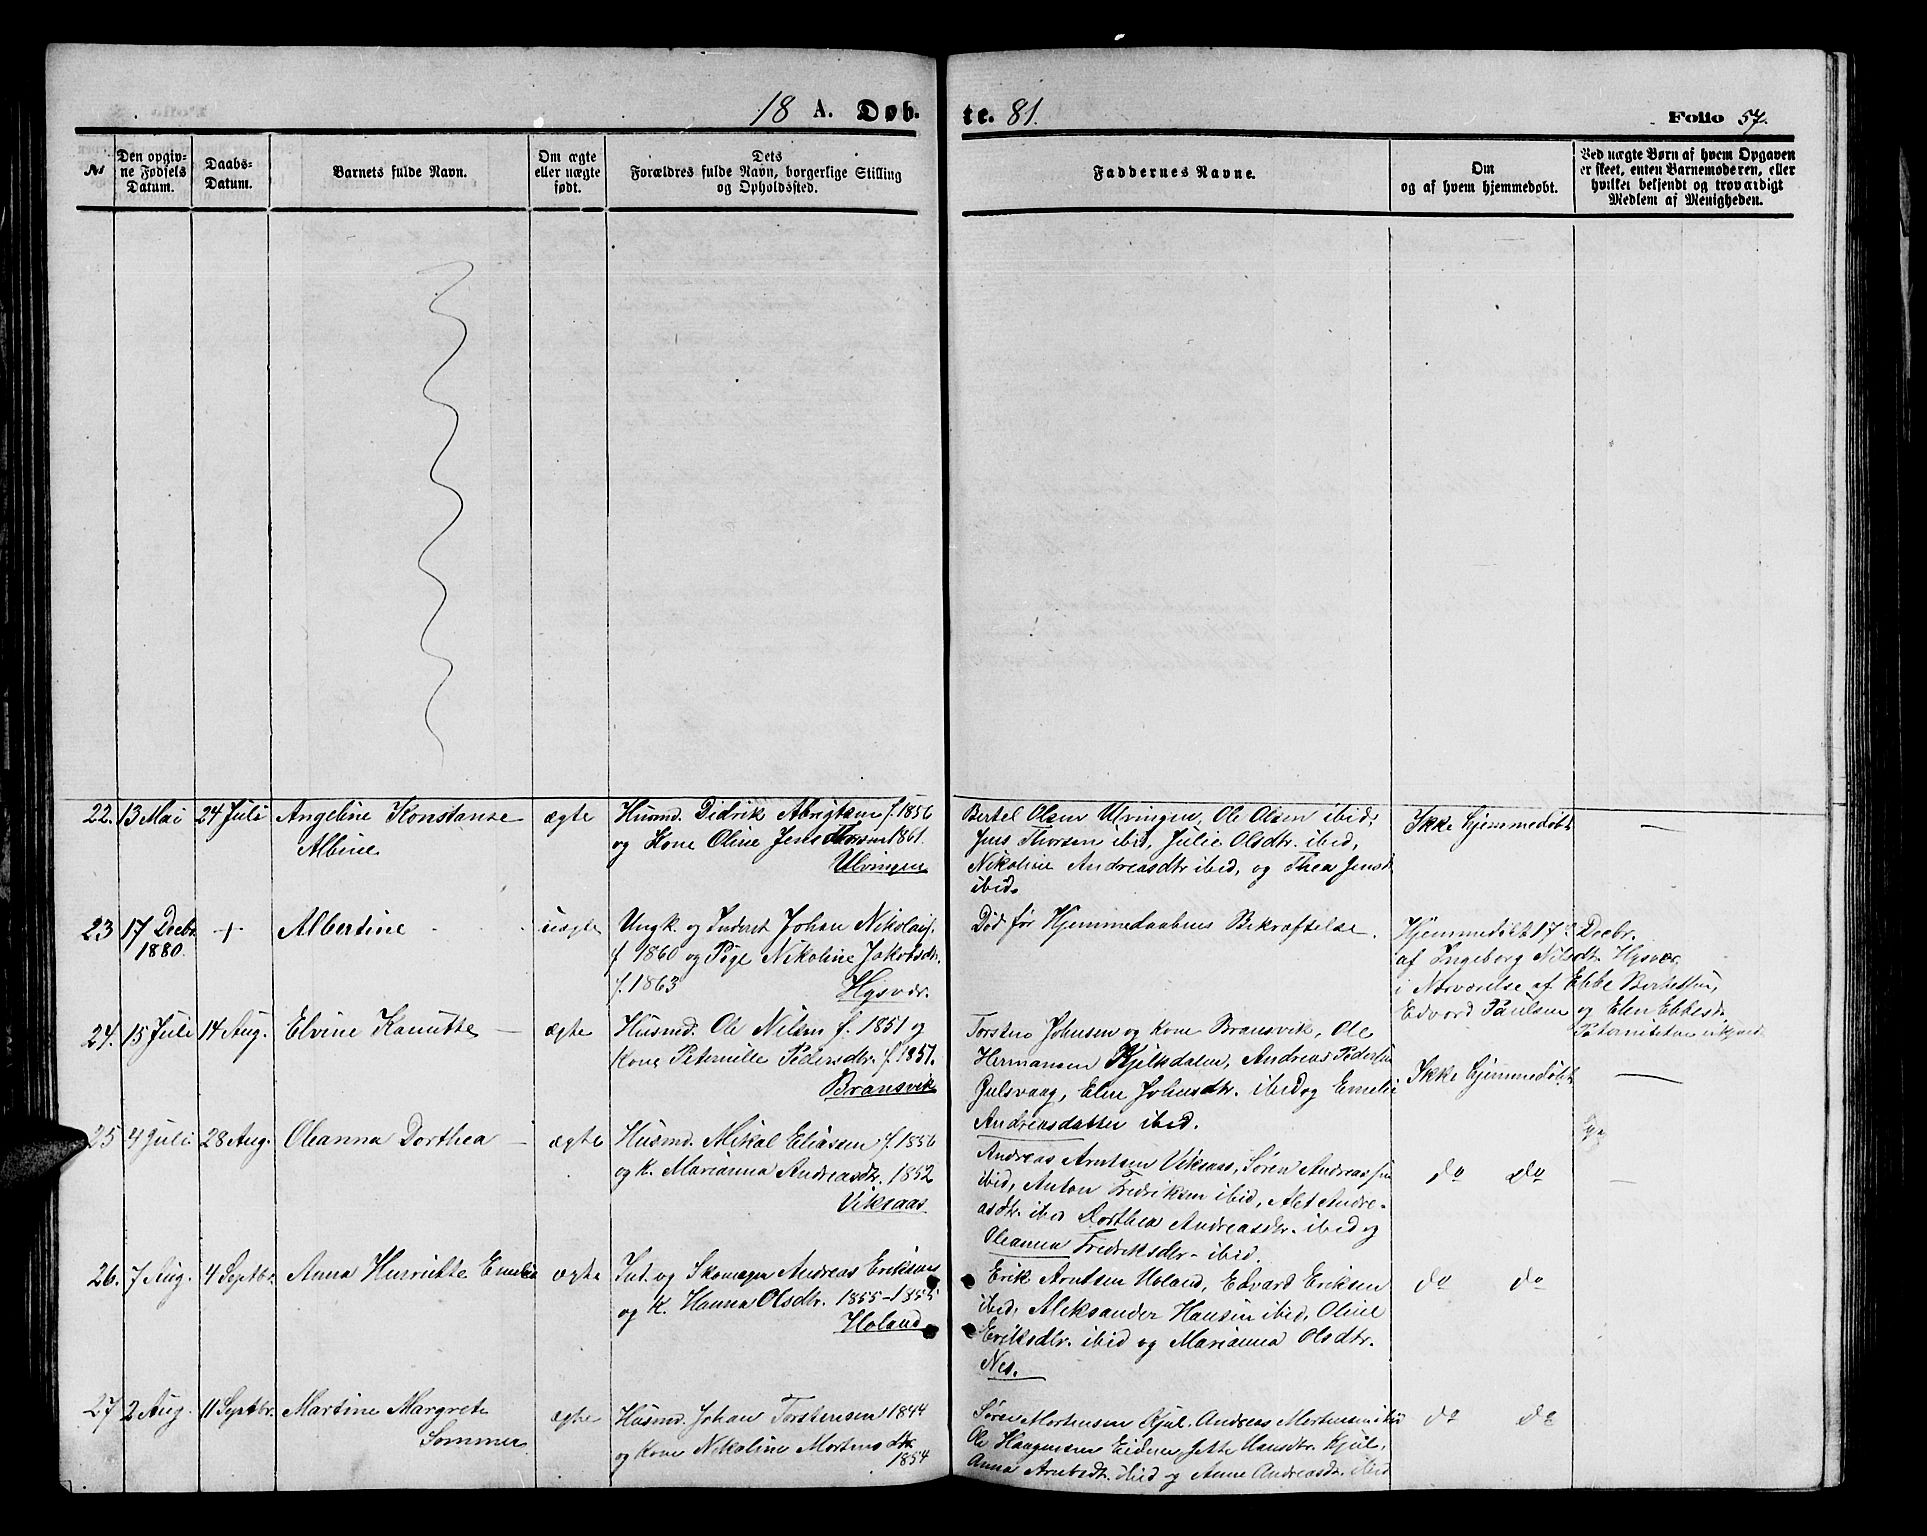 18 A. Døb.
te. 81.
Folio 57.
No
Den opgiv-
ne Fødsels
Datum.
Daabs-
Datum.
Barnets fulde Navn.
Om ægte
eller uægte
født.
Dets
Forældres fulde Navn, borgerlige Stilling
og Opholdssted.
Faddernes Navne.
Om
og af hvem hjemmedøbt.
Ved uægte Børn af hvem Opgaven
er skeet, enten Barnemoderen, eller
hvilket bekjendt og troværdigt
Medlem af Menigheden.
22. 13 Mai 24 Juli Angeline Konstanse
Albine
ægte
Husmd. Didrik Abrigtsen f. 1856
og Kone Oline Jens 1861.
Ulvingen
Bertel Olsen Ulvingen, Ole Olsen ibid,
Jens Thorsen ibid, Julie Olsdtr. ibid,
Nikoline Andreasdtr ibid, og Thea Jensd
ibid.
Ikke Hjemmedøbt
—
23 17 Decbr. + Albertine
1880.
uægte
Ungk. og Inderst Johan Nikolais.
f. 1860 og Pige Nikoline Jakobsdtr.
f. 1863 Hysvær.
Død før Hjemmedaabens Bekræftelse.
Hjemmedøbt 17de Decbr.
af Ingeborg Nilsdtr Hysvær
i Nærværelse af Ebbe Berhettsen,
Edvard Paulsen og Elen Ebbesd.
24. 15 Juli 14 Aug. Elvine Kanutte —
ægte
Husmd. Ole Nilsen f. 1851 og
Kone Peternille Pedersdtr. f. 1851.
Bransvik
Torsten Johnsen og Kone Bransvik, Ole
Hermansen Kjelkdalen, Andreas Pedersen
Gulsvaag, Elen Johnsdtr. ibid og Emelie
Andreasdatter ibid.
Ikke Hjemmedøbt
—
25 4 Juli 28 Aug. Oleanna Dorthea —
ægte
Husmd. Mikal Eliassen f. 1856
og K. Marianna Andreasdtr. 1852
Viksaas
Andreas Arntsen Viksaas, Søren Andreassen
ibid, Anton Fredriksen ibid, Alet Andre-
asdtr. ibid Dorthea Andreasdtr. ibid og
Oleanna Fredriksdtr. ibid.
do do
—
26. 7 Aug. 4 Septbr. Anna Henriette Emelie
ægte
Ind. og Skomager Andreas Eriksen
og K. Hanna Olsdtr. 1855-1855
Holand
Erik Arntsen Holand, Edvard Eriksen
ibid, Aleksander Hansen ibid, Oline
Eriksdtr. ibid og Marianna Olsdtr.
Nes.
do do
27 2 Aug. 11 Septbr. Martine Margrete
Sommer
ægte
Husmd. Johan Torstensen 1844
og Kone Nikoline Mortensdtr
1854
Søren Mortensen Kjul, Andreas Mortensen ibid
Ole Haagensen Eidene Jette Hansdtr. Kjul,
Anna Arntsdt. ibid og Anne Andreasdt. ibid
do do